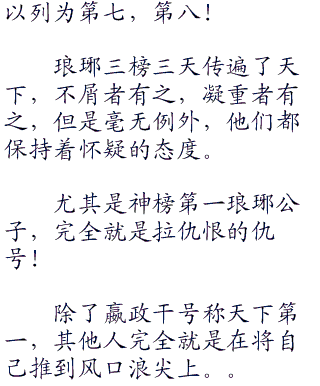 以列为第七，第八！
琅琊三榜三天传遍了天
下，不屑者有之，凝重者有
之，但是毫无例外，他们都
保持着怀疑的态度。
尤其是神榜第一琅琊公
子，完全就是拉仇恨的仇
号！
除了嬴政干号称天下第
一，其他人完全就是在将自
己推到风口浪尖上。。